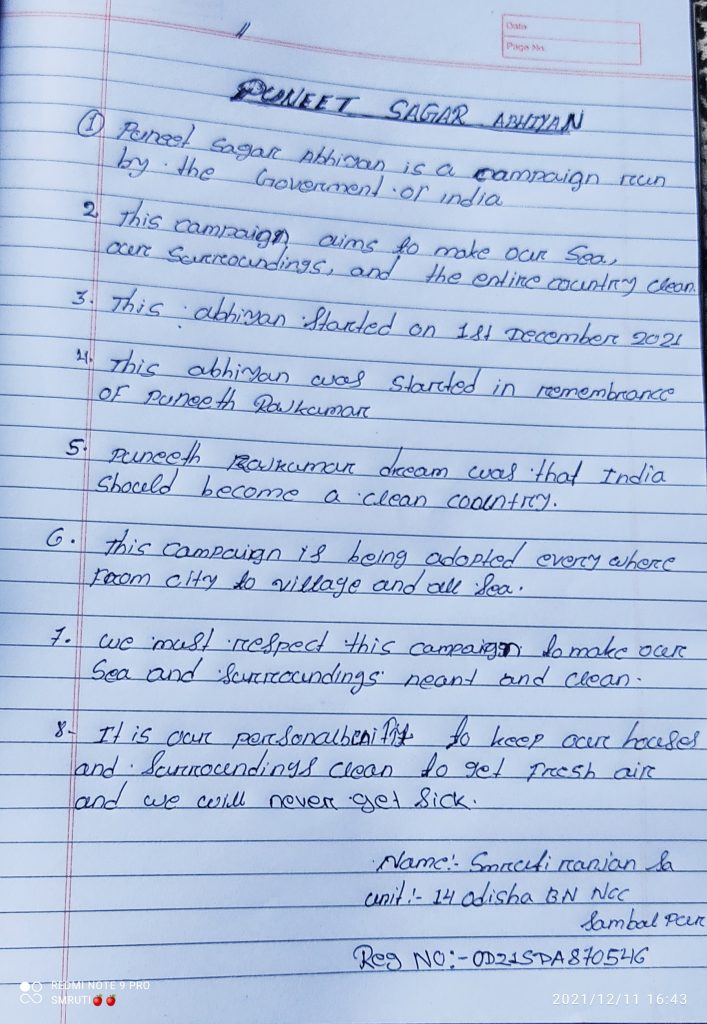 Date
Page No.
PUNEET SAGAR ABHIYAN
① Puneet Sagar Abhiyan is a campaign run
by the Goverment of india
2. This campaign aims to make our Sea,
our surroundings, and the entire country clean.
3. This abhiyan started on 1st December 2021
4. This abhiyan was started in remembrance
of Puneeth Rajkumar
5. Puneeth Rajkumar dream was that India
should become a clean country.
6. This campaign is being adopted every where
From city to village and all sea.
7. we must respect this campaign to make our
Sea and surroundings neant and clean.
8. It is our personal benifit to keep our houses
and surroundings clean to get fresh air
and we will never get sick.
Name:- Smruti ranjan Sa
unit:- 14 odisha BN NCC
Sambalpur
Reg NO:- OD21SDA870546
REDMI NOTE 9 PRO
SMRUTI🍎🍎
2021/12/11 16:43